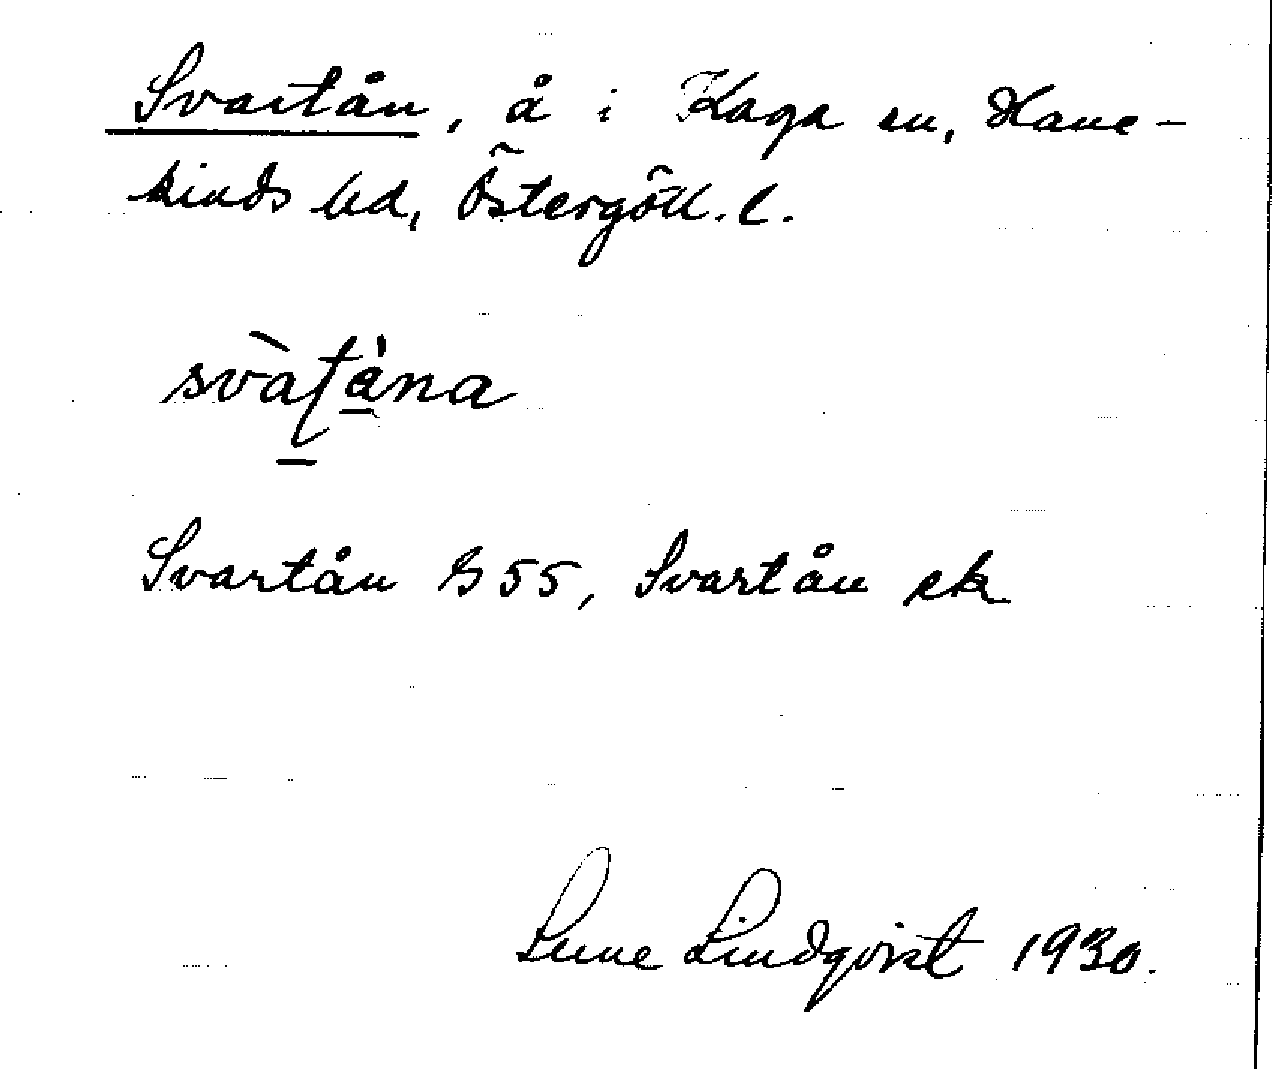 Svartån, å i Kaga sn, Hane-
kinds hd, Östergötl. l.
svàʈàna
Svartån G 55, Svartån ek
Sune Lindqvist 1930.